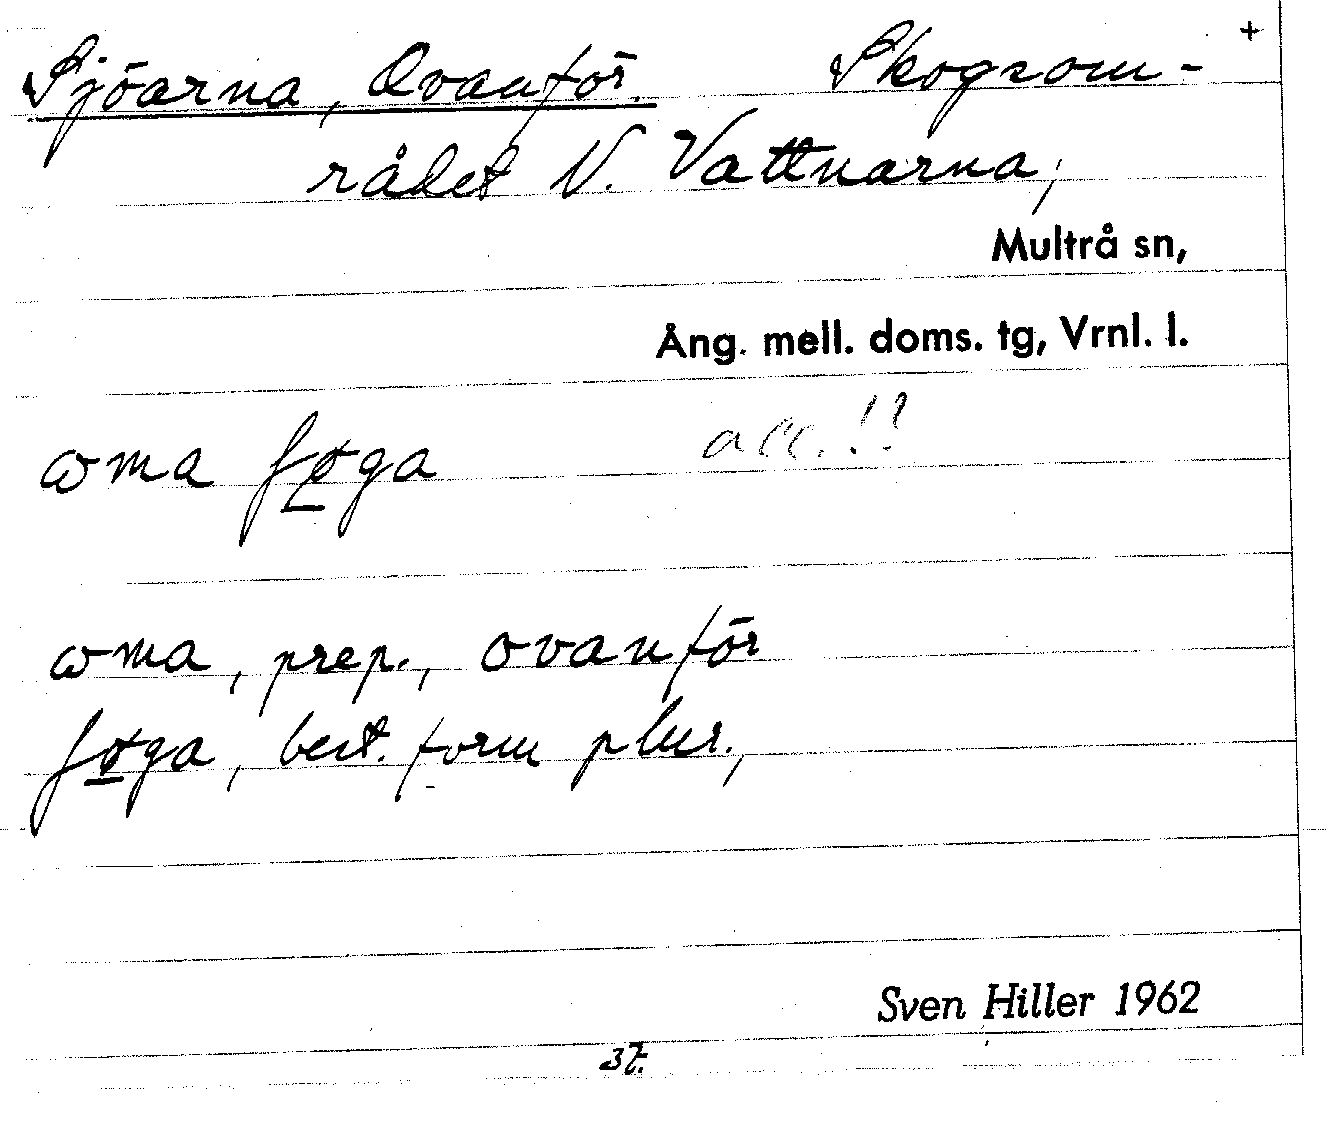 +
Sjöarna, Ovanför. Skogsom-
rådet N. Vattnarna;
Multrå sn,
Ång. mell. doms. tg, Vrnl. l.
ɷma ʃøga acc.!!
ɷma, prep., ovanför
ʃøga, best. form plur.,
Sven Hiller 1962
32.